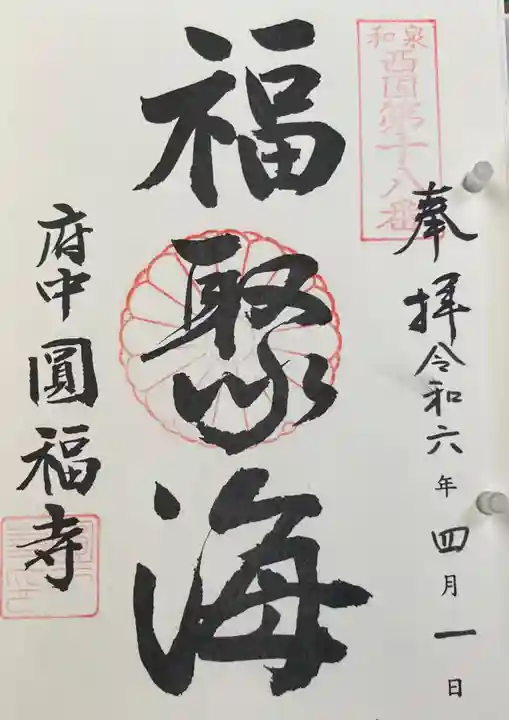 和泉
西国第十八番
奉拝令和六年四月一日
福聚海
府中圓福寺